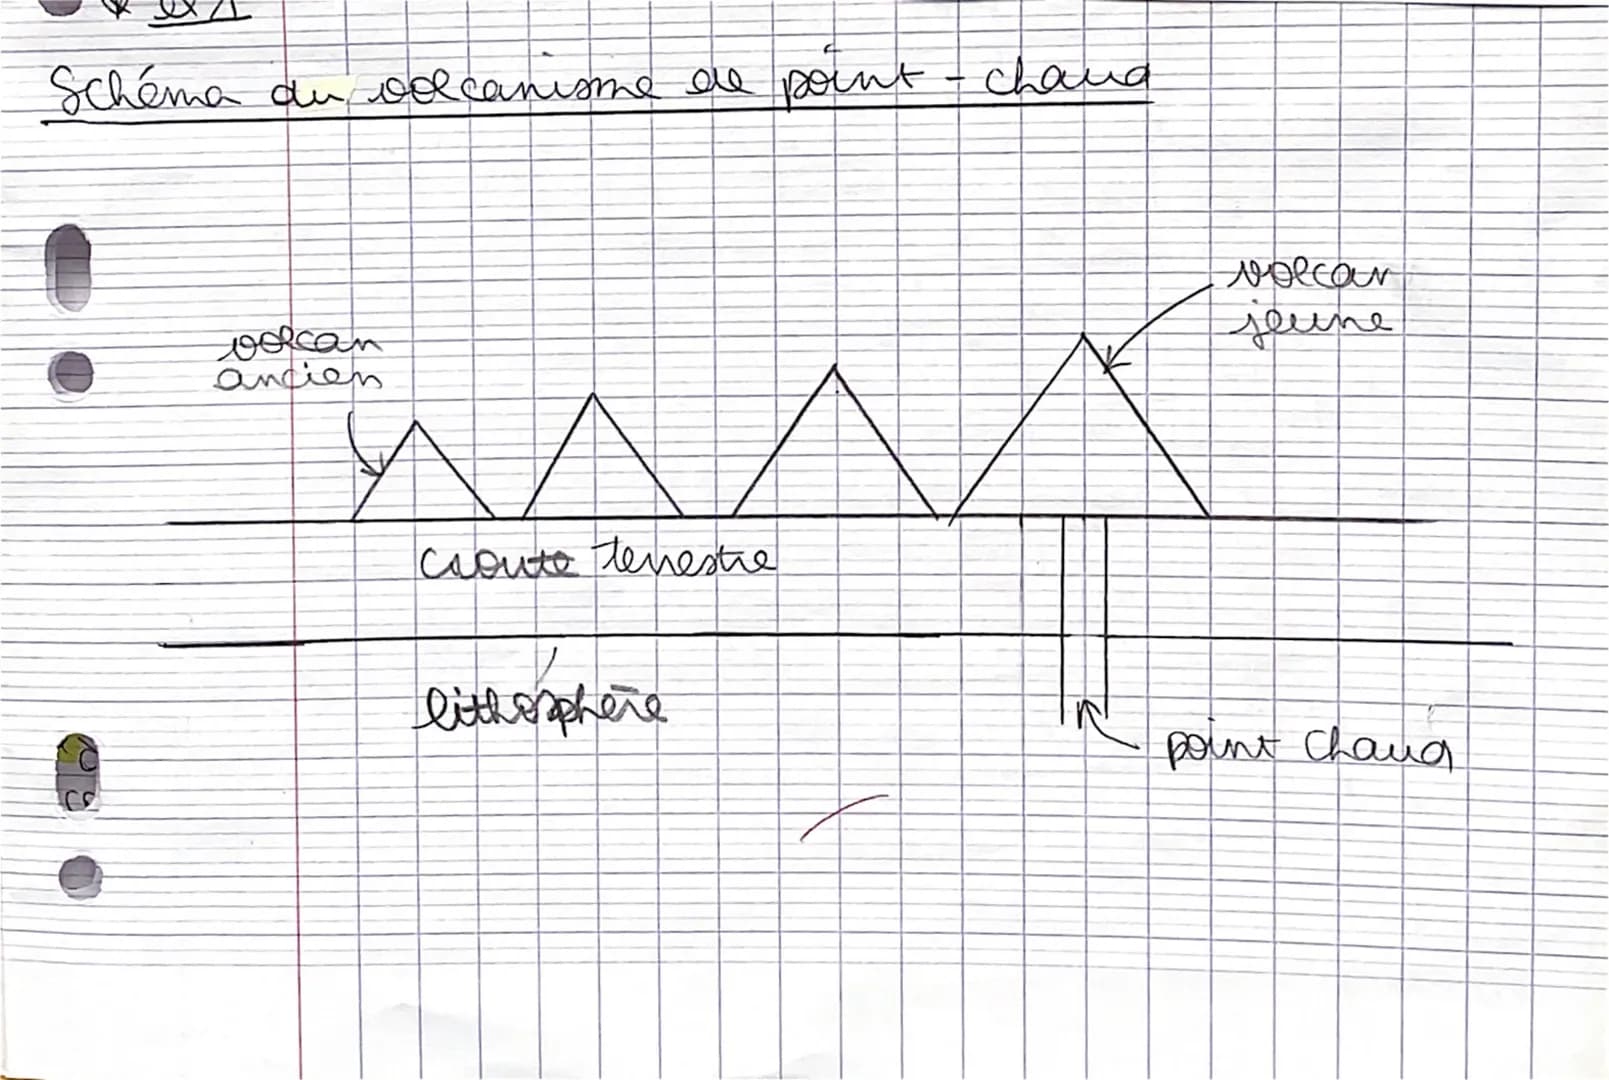 ex 1
Schéma du volcanisme de point - chaud
volcan
jeune
volcan
ancien
croute terrestre
lithosphère
point chaud